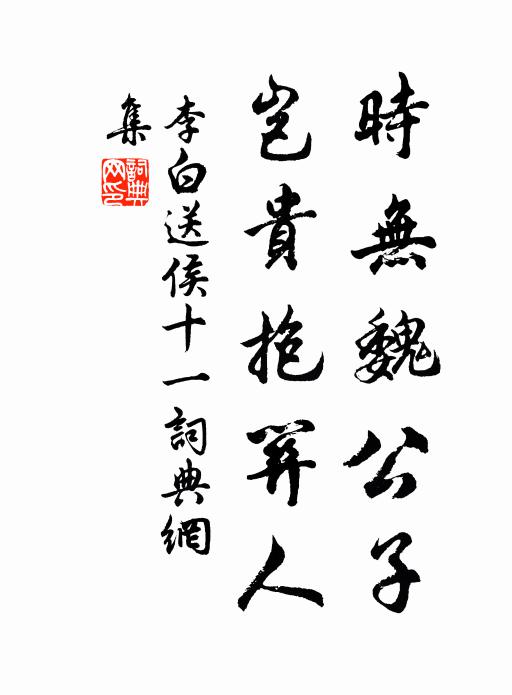 時無魏公子
豈貴抱關人
李白送侯十一詞典網
集
詞典网印